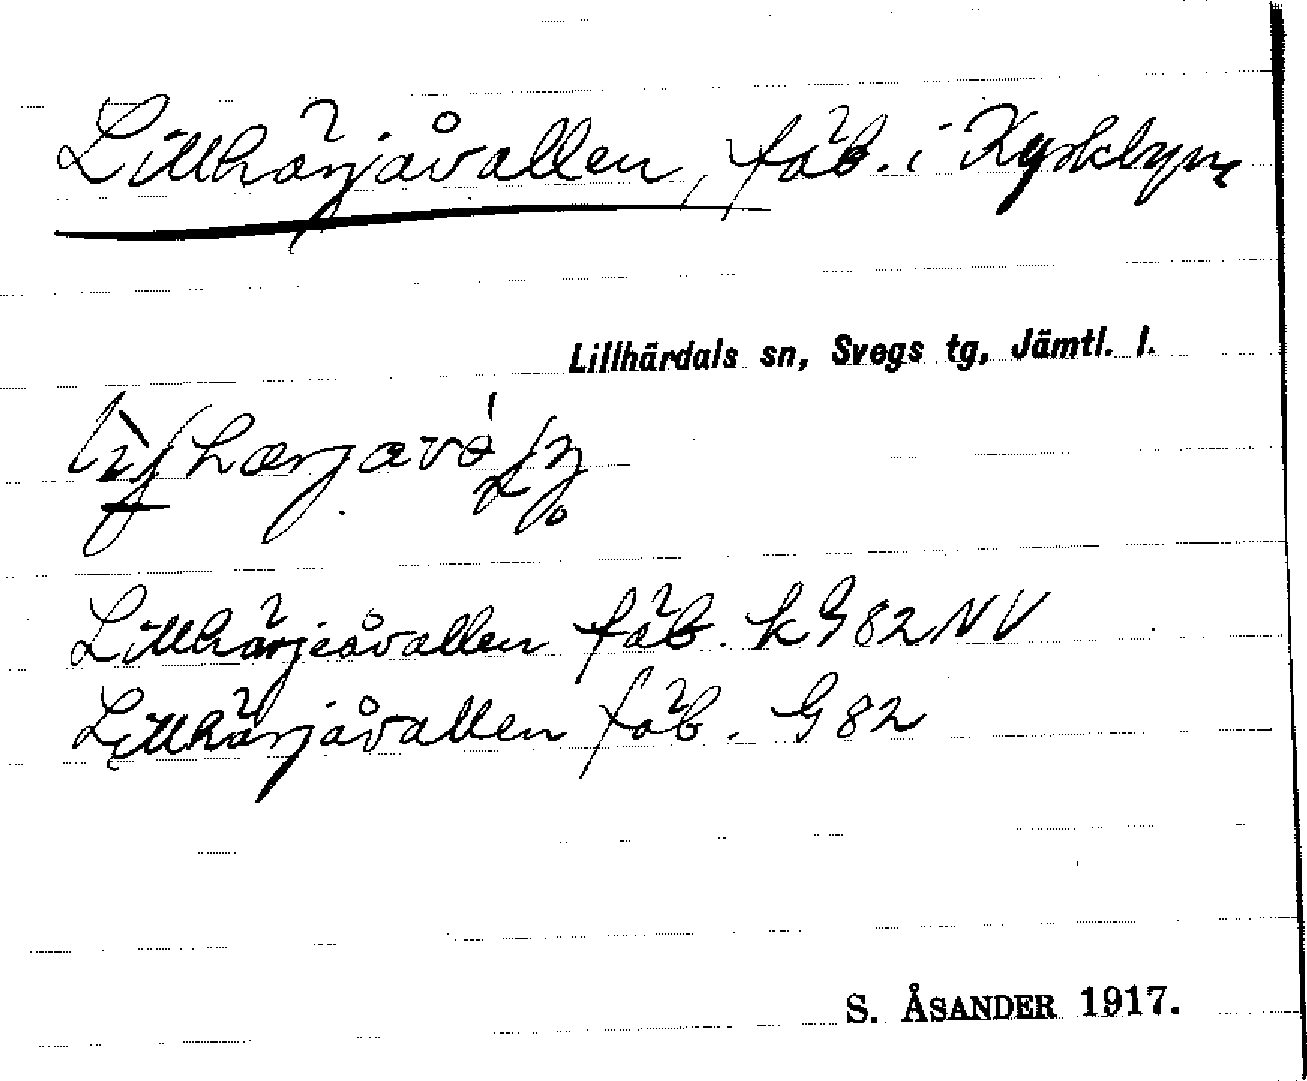 Lillhärjåvallen, fäb. i Kyrkbyn
Lillhärdals sn, Svegs tg, Jämtl. l.
Lillhärjeåvallen fäb. k G 82 NV
Lillhärjåvallen fäb. G 82
S. ÅSANDER 1917.